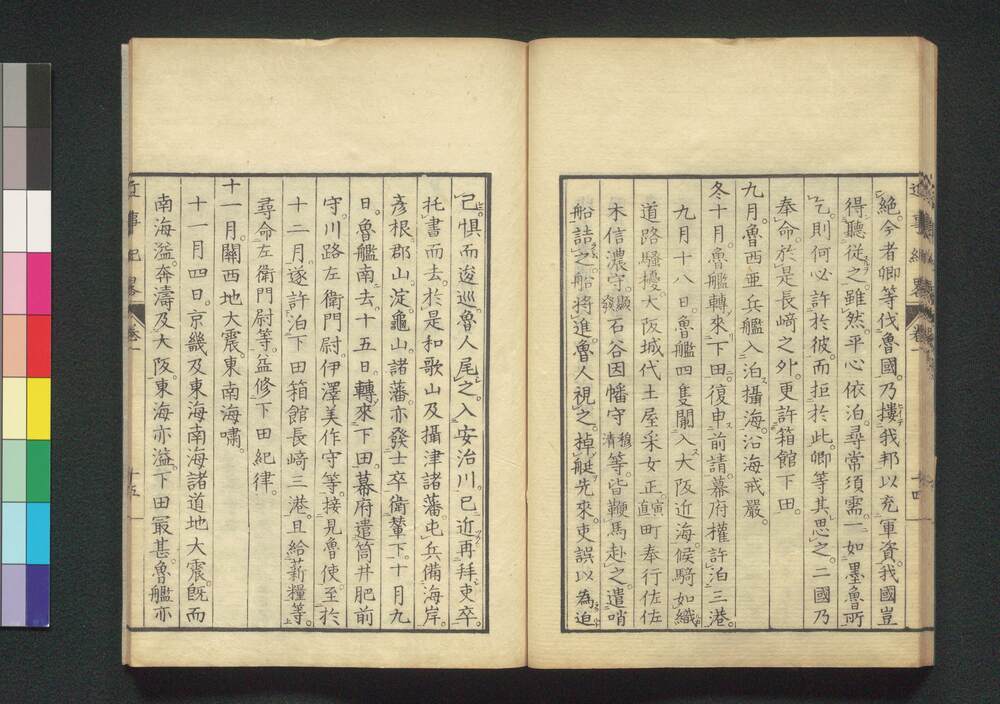 絶。今者卿等伐魯國。乃摟我邦以充軍資。我國豈
得聽從之。雖然。平心依泊。尋常須需。一如墨魯所
乞。則何必許於彼。而拒於此。卿等其思之。二國乃
奉命。於是長﨑之外。更許箱館下田。
九月。魯西亜兵艦入泊攝海。沿海戒嚴。
冬十月。魯艦轉來下田。復申前請。幕府權許泊三港。
九月十八日。魯艦四隻闌入大阪近海。候騎如織。
道路騷擾。大阪城代土屋采女正寅直町奉行佐佐
木信濃守顯發石谷因幡守穆清等。皆鞭馬赴之。遣哨
船詰之。船將進。魯人視之。掉艇先來。吏誤以為迫
己。惧而逡巡。魯人尾之。入安治川。已近再拜。吏卒
托書而去。於是和歌山及攝津諸藩。屯兵備海岸。
彦根郡山。淀。龜山。諸藩。亦發士卒。衛輦下。十月九
日。魯艦南去。十五日。轉來下田。幕府遣筒井肥前
守。川路左衛門尉。伊澤美作守等。接見魯使。至於
十二月。遂許泊下田箱館長﨑三港。且給薪糧等。
尋命左衛門尉等。益修下田紀律。
十一月。關西地大震。東南海嘯。
十一月四日。京畿及東海南海諸道地大震。既而
南海溢。奔濤及大阪。東海亦溢。下田最甚。魯艦亦
近事紀畧
卷一
十四
近事紀畧
卷一
十五